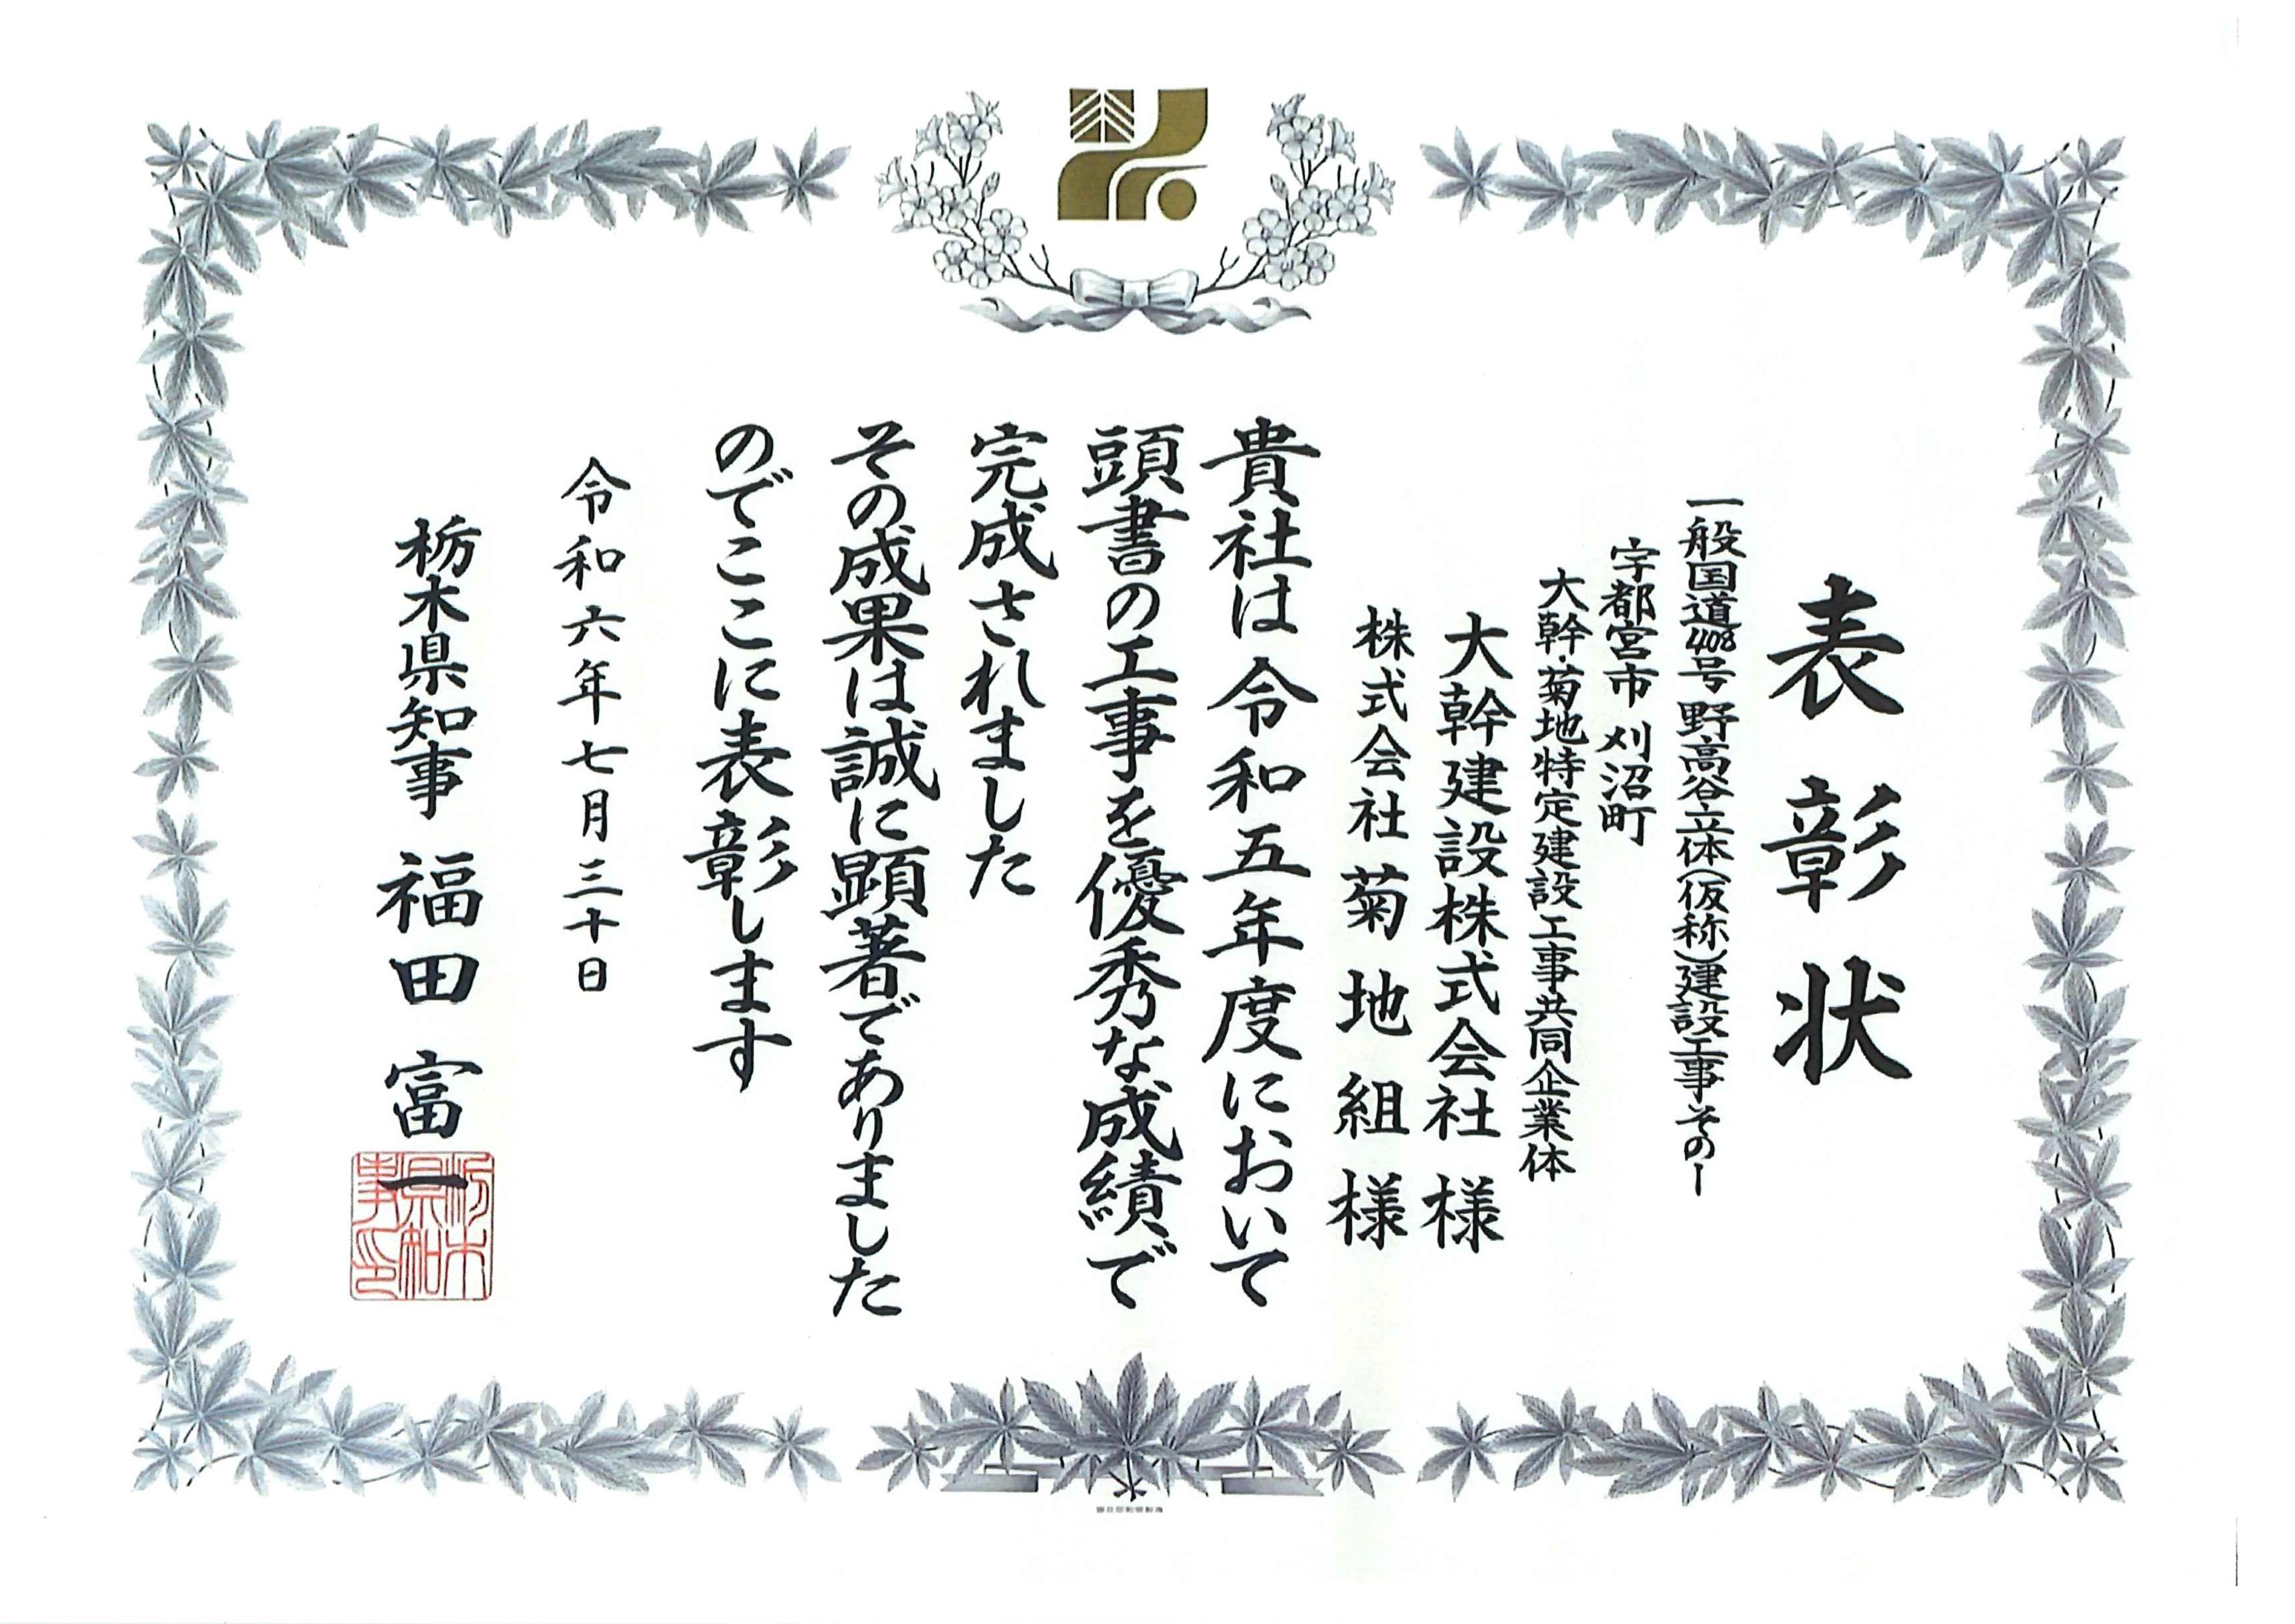 表彰状
一般国道408号野高谷立体(仮称)建設工事その1
宇都宮市刈沼町
大幹・菊地特定建設工事共同企業体
大幹建設株式会社 様
株式会社 菊地組 様
貴社は令和五年度において
頭書の工事を優秀な成績で
完成されました
その成果は誠に顕著でありました
のでここに表彰します
令和六年七月三十日
栃木県知事 福田富一
栃木県知事印